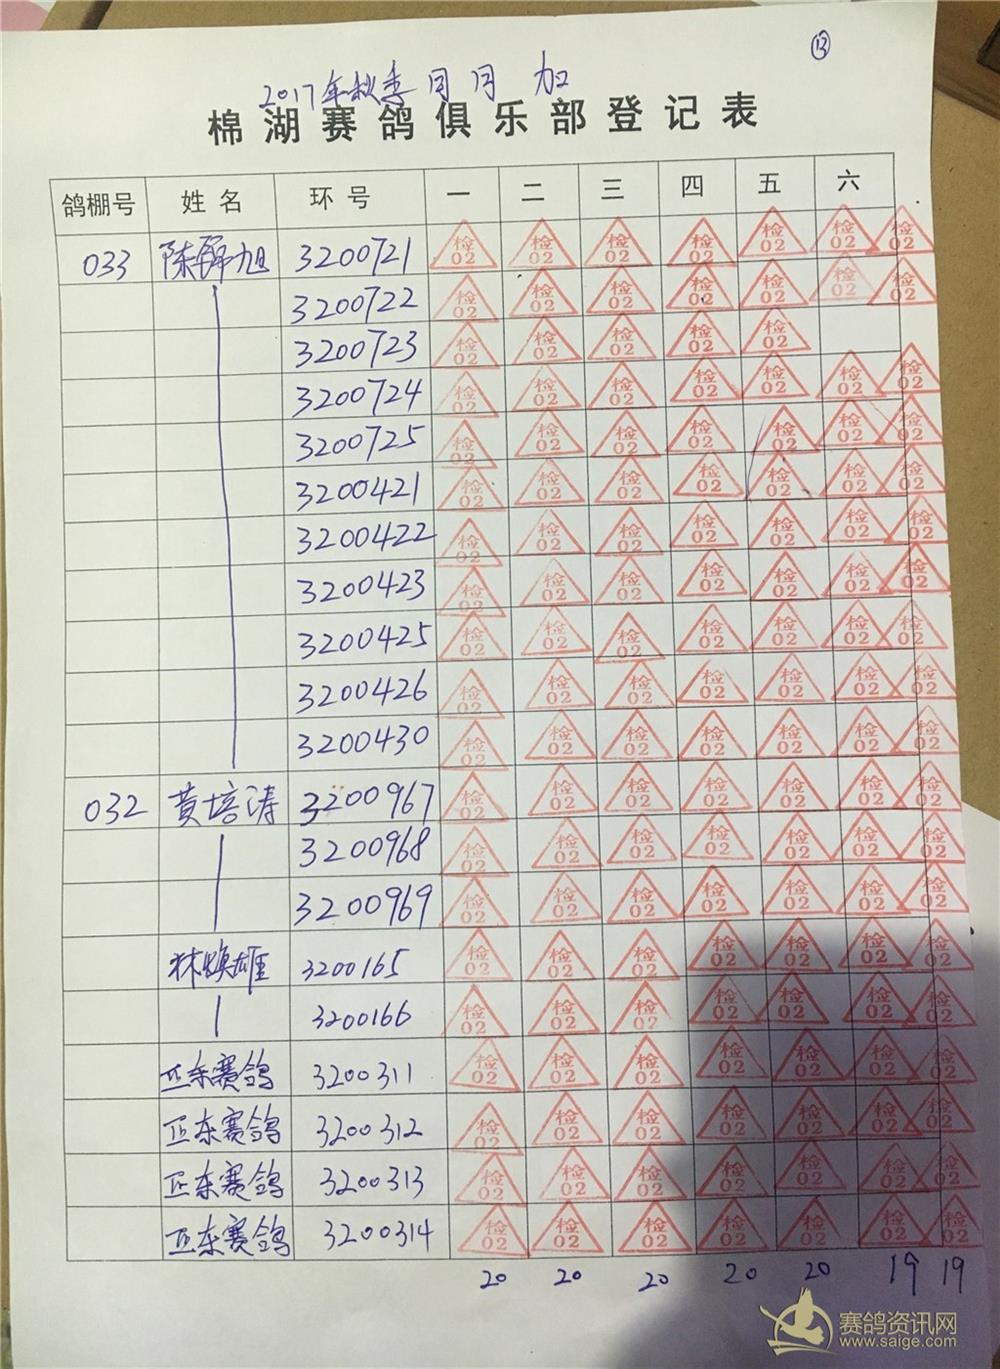 ⑬
2017年秋季 月 月 加
棉湖赛鸽俱乐部登记表
鸽棚号 姓名 环号 一 二 三 四 五 六
033 陈锦旭 3200721 检02 检02 检02 检02 检02 检02 检02
3200722 检02 检02 检02 检02 检02 检02 检02
3200723 检02 检02 检02 检02 检02
3200724 检02 检02 检02 检02 检02 检02 检02
3200725 检02 检02 检02 检02 检02 检02 检02
3200421 检02 检02 检02 检02 检02 检02 检02
3200422 检02 检02 检02 检02 检02 检02 检02
3200423 检02 检02 检02 检02 检02 检02 检02
3200425 检02 检02 检02 检02 检02 检02 检02
3200426 检02 检02 检02 检02 检02 检02 检02
3200430 检02 检02 检02 检02 检02 检02 检02
032 黄培涛 3200967 检02 检02 检02 检02 检02 检02 检02
3200968 检02 检02 检02 检02 检02 检02 检02
3200969 检02 检02 检02 检02 检02 检02 检02
林焕雄 3200165 检02 检02 检02 检02 检02 检02 检02
3200166 检02 检02 检02 检02 检02 检02 检02
正东赛鸽 3200311 检02 检02 检02 检02 检02 检02 检02
正东赛鸽 3200312 检02 检02 检02 检02 检02 检02 检02
正东赛鸽 3200313 检02 检02 检02 检02 检02 检02 检02
正东赛鸽 3200314 检02 检02 检02 检02 检02 检02 检02
20 20 20 20 20 19 19
赛鸽资讯网
www.saige.com